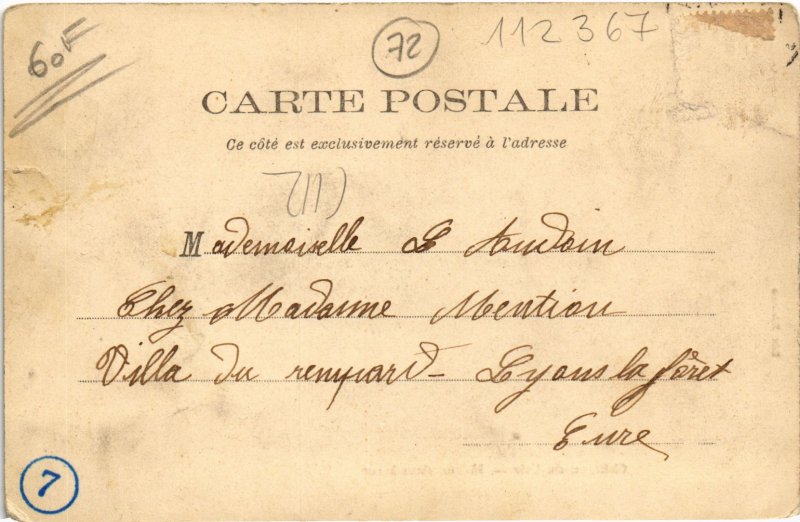 60F
72
112367
CARTE POSTALE
Ce côté est exclusivement réservé à l'adresse
Mademoiselle L Audoin
Chez Madame Mention
Villa du rempard - Lyons la fôret
Eure
7